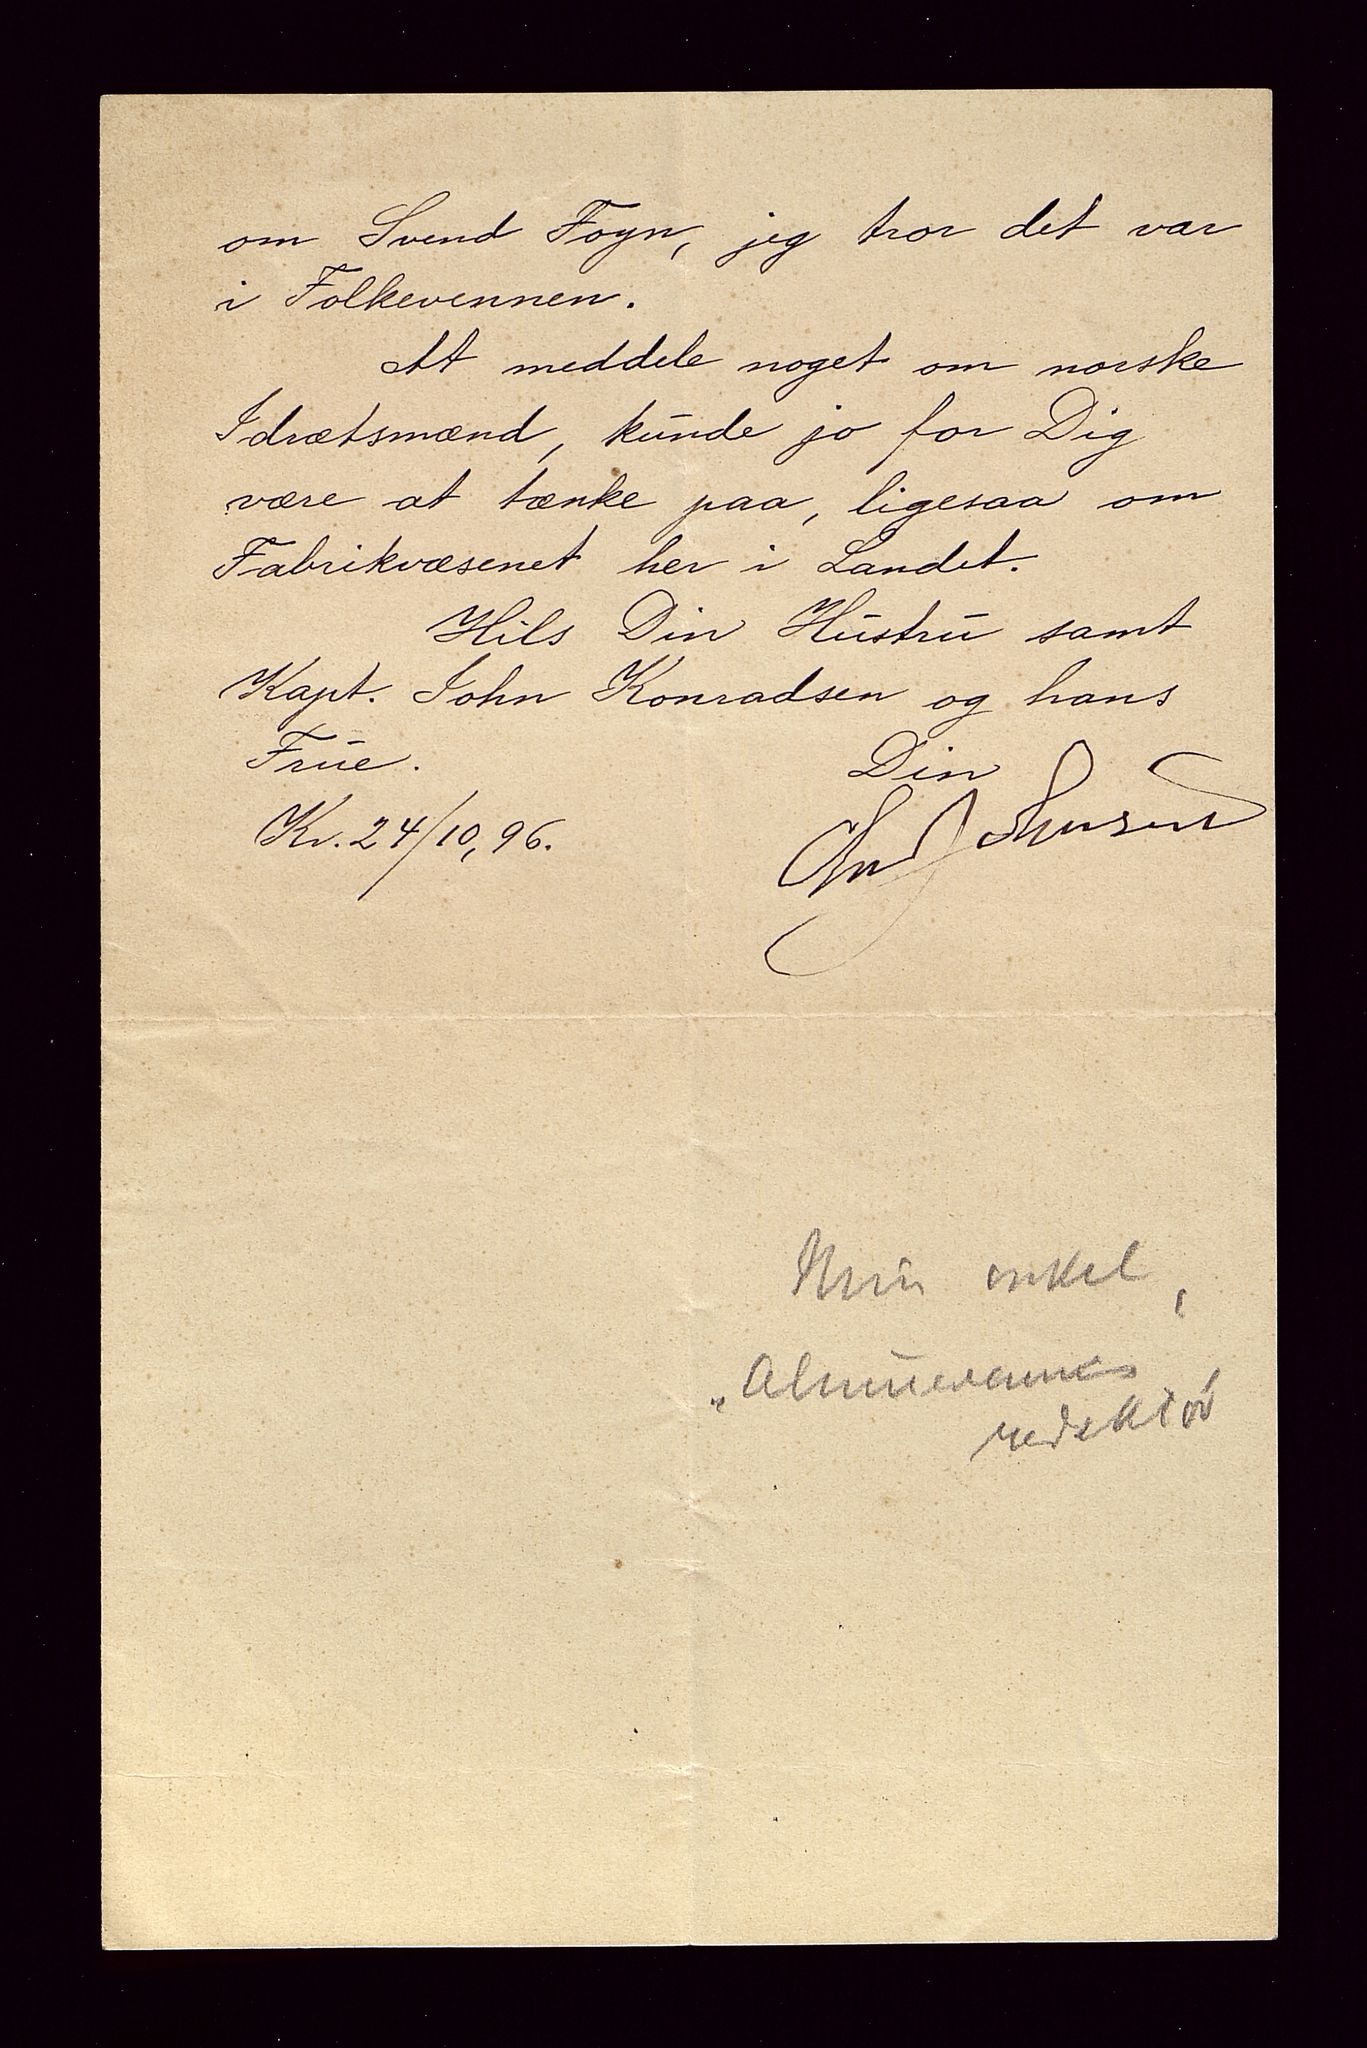 om Svend Foyn, jeg tror det var
i Folkevennen.
At meddele noget om norske
Idrætsmænd, kunde jo for Dig
være at tænke paa, ligesaa om
Fabrikvæsenet her i Landet.
Hils Din Hustru samt
Kapt. John Konradsen og hans
Frue.
Din
Kr. 24/10, 96.
Chr Johnsen
Min onkel,
„Almuevennens
redaktör